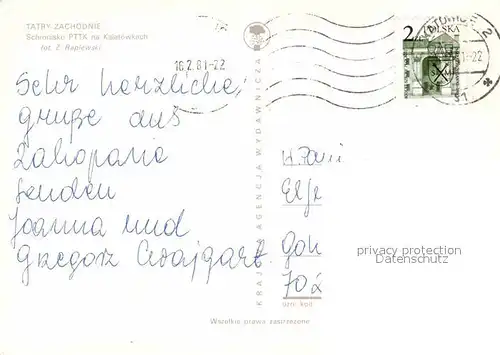 TATRY ZACHODNIE
Schronisko PTTK na Kalatówkach
fot. Z. Rapiewski
16.2.81-22
2 ZŁ
POLSKA
KATOWICE 2
Sehr herzliche,
gruße aus
Zakopane
senden
Joanna und
Grzegorz
KRAJOWA AGENCJA WYDAWNICZA
Elfr
privacy protection
Datenschutz
Wszelkie prawa zastrzeżone